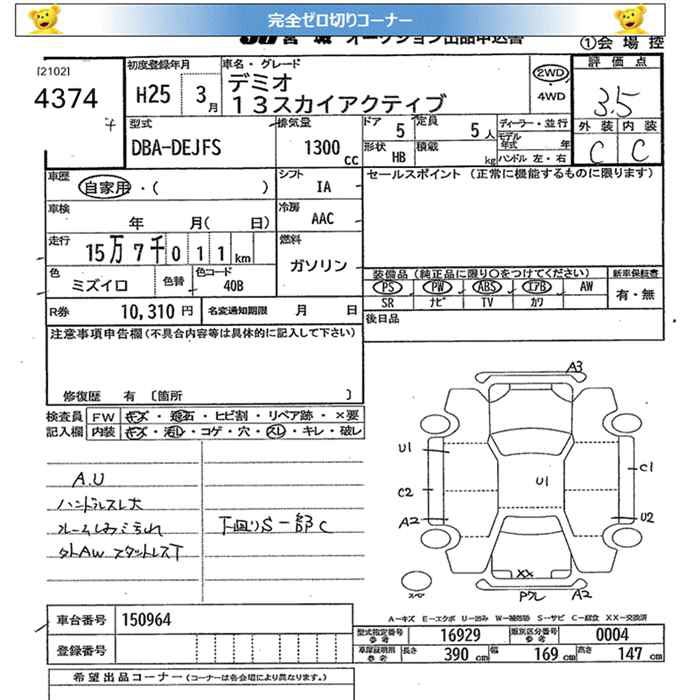 完全ゼロ切りコーナー
宮城 オークション出品申込書
①会場控
[2102]
4374
初度登録年月
H25 3月
車名・グレード
デミオ
13スカイアクティブ
2WD
4WD
評価点
3.5
外装 内装
C C
型式
DBA-DEJFS
排気量
1300cc
ドア 5
定員 5人
形状 HB
積載 kg
ディーラー・並行
モデル年式 年
ハンドル 左・右
車歴
自家用・( )
シフト
IA
セールスポイント(正常に機能するものに限ります)
車検
年 月( 日)
冷房
AAC
走行
15万7千011km
燃料
ガソリン
色
ミズイロ
色替
色コード
40B
装備品(純正品に限り○をつけてください)
PS PW ABS エアB AW
SR ナビ TV カワ
新車保証書
有・無
R券 10,310円
名変通知期限 月 日
後日品
注意事項申告欄(不具合内容等は具体的に記入して下さい)
修復歴 有 〔箇所 〕
検査員記入欄
FW キズ・飛石・ヒビ割・リペア跡・×要
内装 キズ・汚レ・コゲ・穴・スレ・キレ・破レ
A.U
ハンドルスレ大
ルームしみこちれ
外AW スタットレス下
下回りS一部C
A3
U1
C2
A2
U1
C1
U2
XX
Pワレ
A2
スペア
A-キズ E-エクボ U-凹み W-補修跡 S-サビ C-腐食 XX-交換済
車台番号 150964
登録番号
型式指定番号 参考 16929
類別区分番号 参考 0004
車庫証明用 参考
長さ 390cm
幅 169cm
高さ 147cm
希望出品コーナー(コーナーは各会場により異なります。)